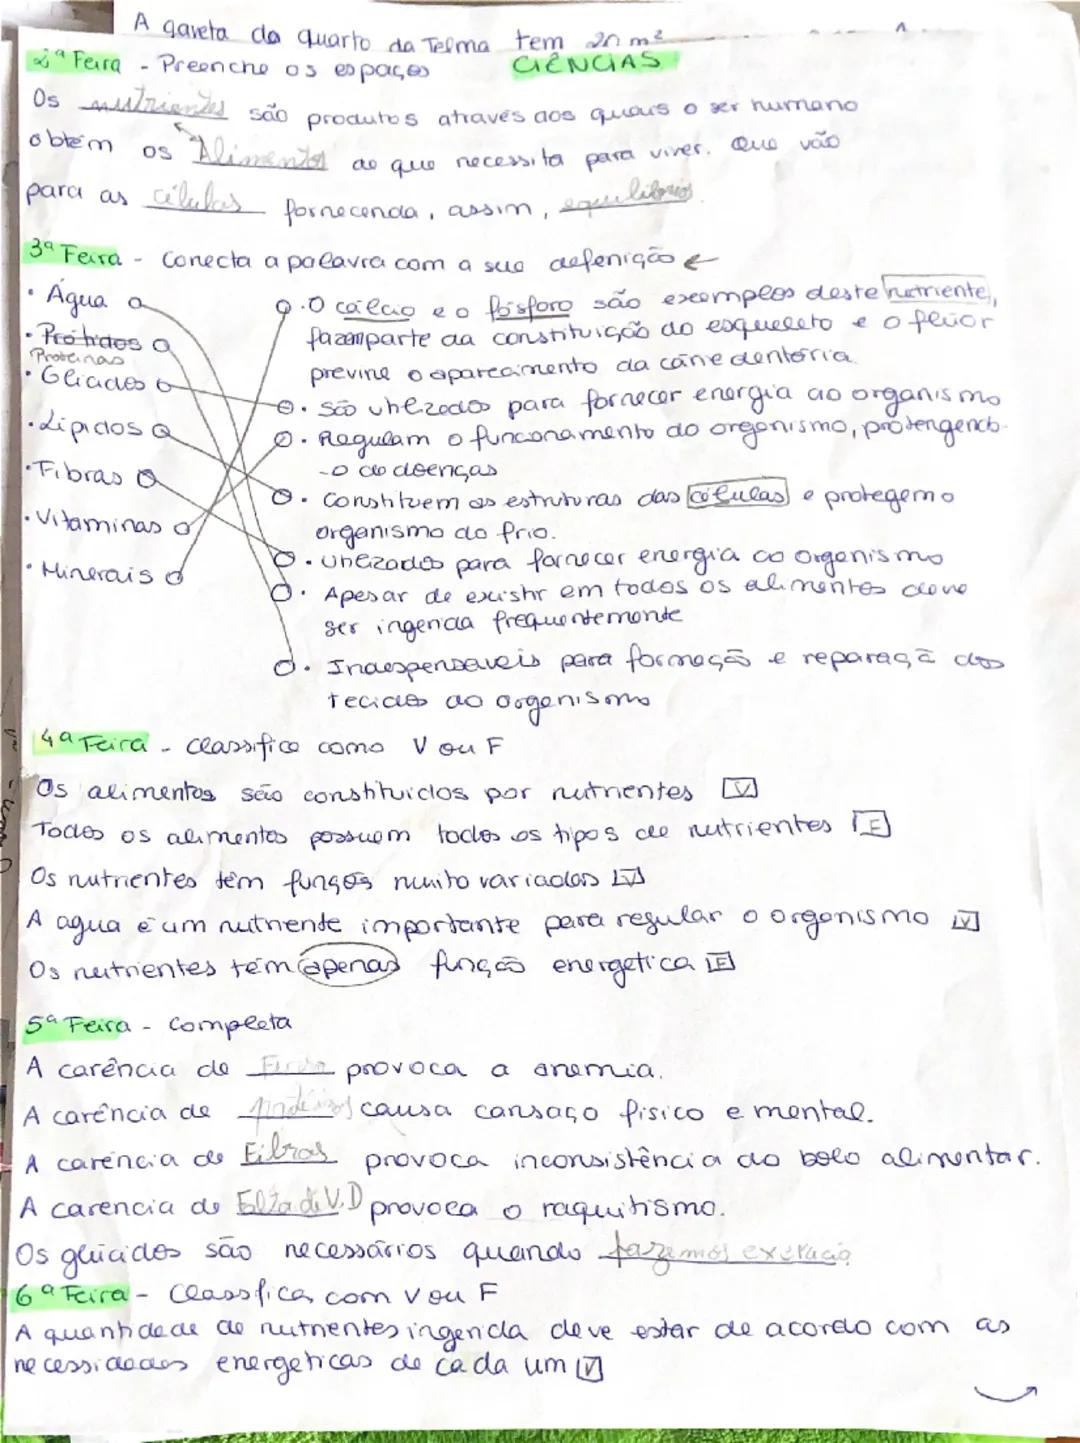 A gaveta do quarto da Telma tem 20 m²
2ª Feira - Preenche os espaços CIÊNCIAS
Os nutrientes são produtos através dos quais o ser humano
obtém os Alimentos de que necessita para viver. Que vão
para as células fornecendo, assim, equilibrios.
3ª Feira - Conecta a palavra com a sua defenição
• Água
• Prótidos
Proteinas
• Glicidos
• Lípidos
• Fibras
• Vitaminas
• Minerais
• O cálcio e o fósforo são exemplos deste nutriente,
fazem parte da constituição do esqueleto e o flúor
previne o aparecimento da cárie dentária.
• São utilizados para fornecer energia ao organismo
• Regulam o funcionamento do organismo, protengendo-
-o de doenças
• Constituem as estruturas das células e protegem o
organismo do frio.
• Utilizados para fornecer energia ao organismo
• Apesar de existir em todos os alimentos deve
ser ingerida frequentemente
• Indespensaveis para formação e reparaçã dos
tecidos do organismo
4ª Feira - Classifica como V ou F
Os alimentos são constituidos por nutrientes V
Todos os alimentos possuem todos os tipos de nutrientes F
Os nutrientes têm funçõs muito variadas V
A agua é um nutriente importante para regular o organismo V
Os nutrientes têm apenas função energetica F
5ª Feira - Completa
A carência de provoca a anemia.
A carência de causa cansaço fisico e mental.
A carência de Fibras provoca inconsistência do bolo alimentar.
A carencia de Falta de V.D provoca o raquitismo.
Os glúcidos são necessários quando fazemos exercicio
6ª Feira - Classifica com V ou F
A quantidade de nutrientes ingerida deve estar de acordo com as
necessidades energeticas de cada um V